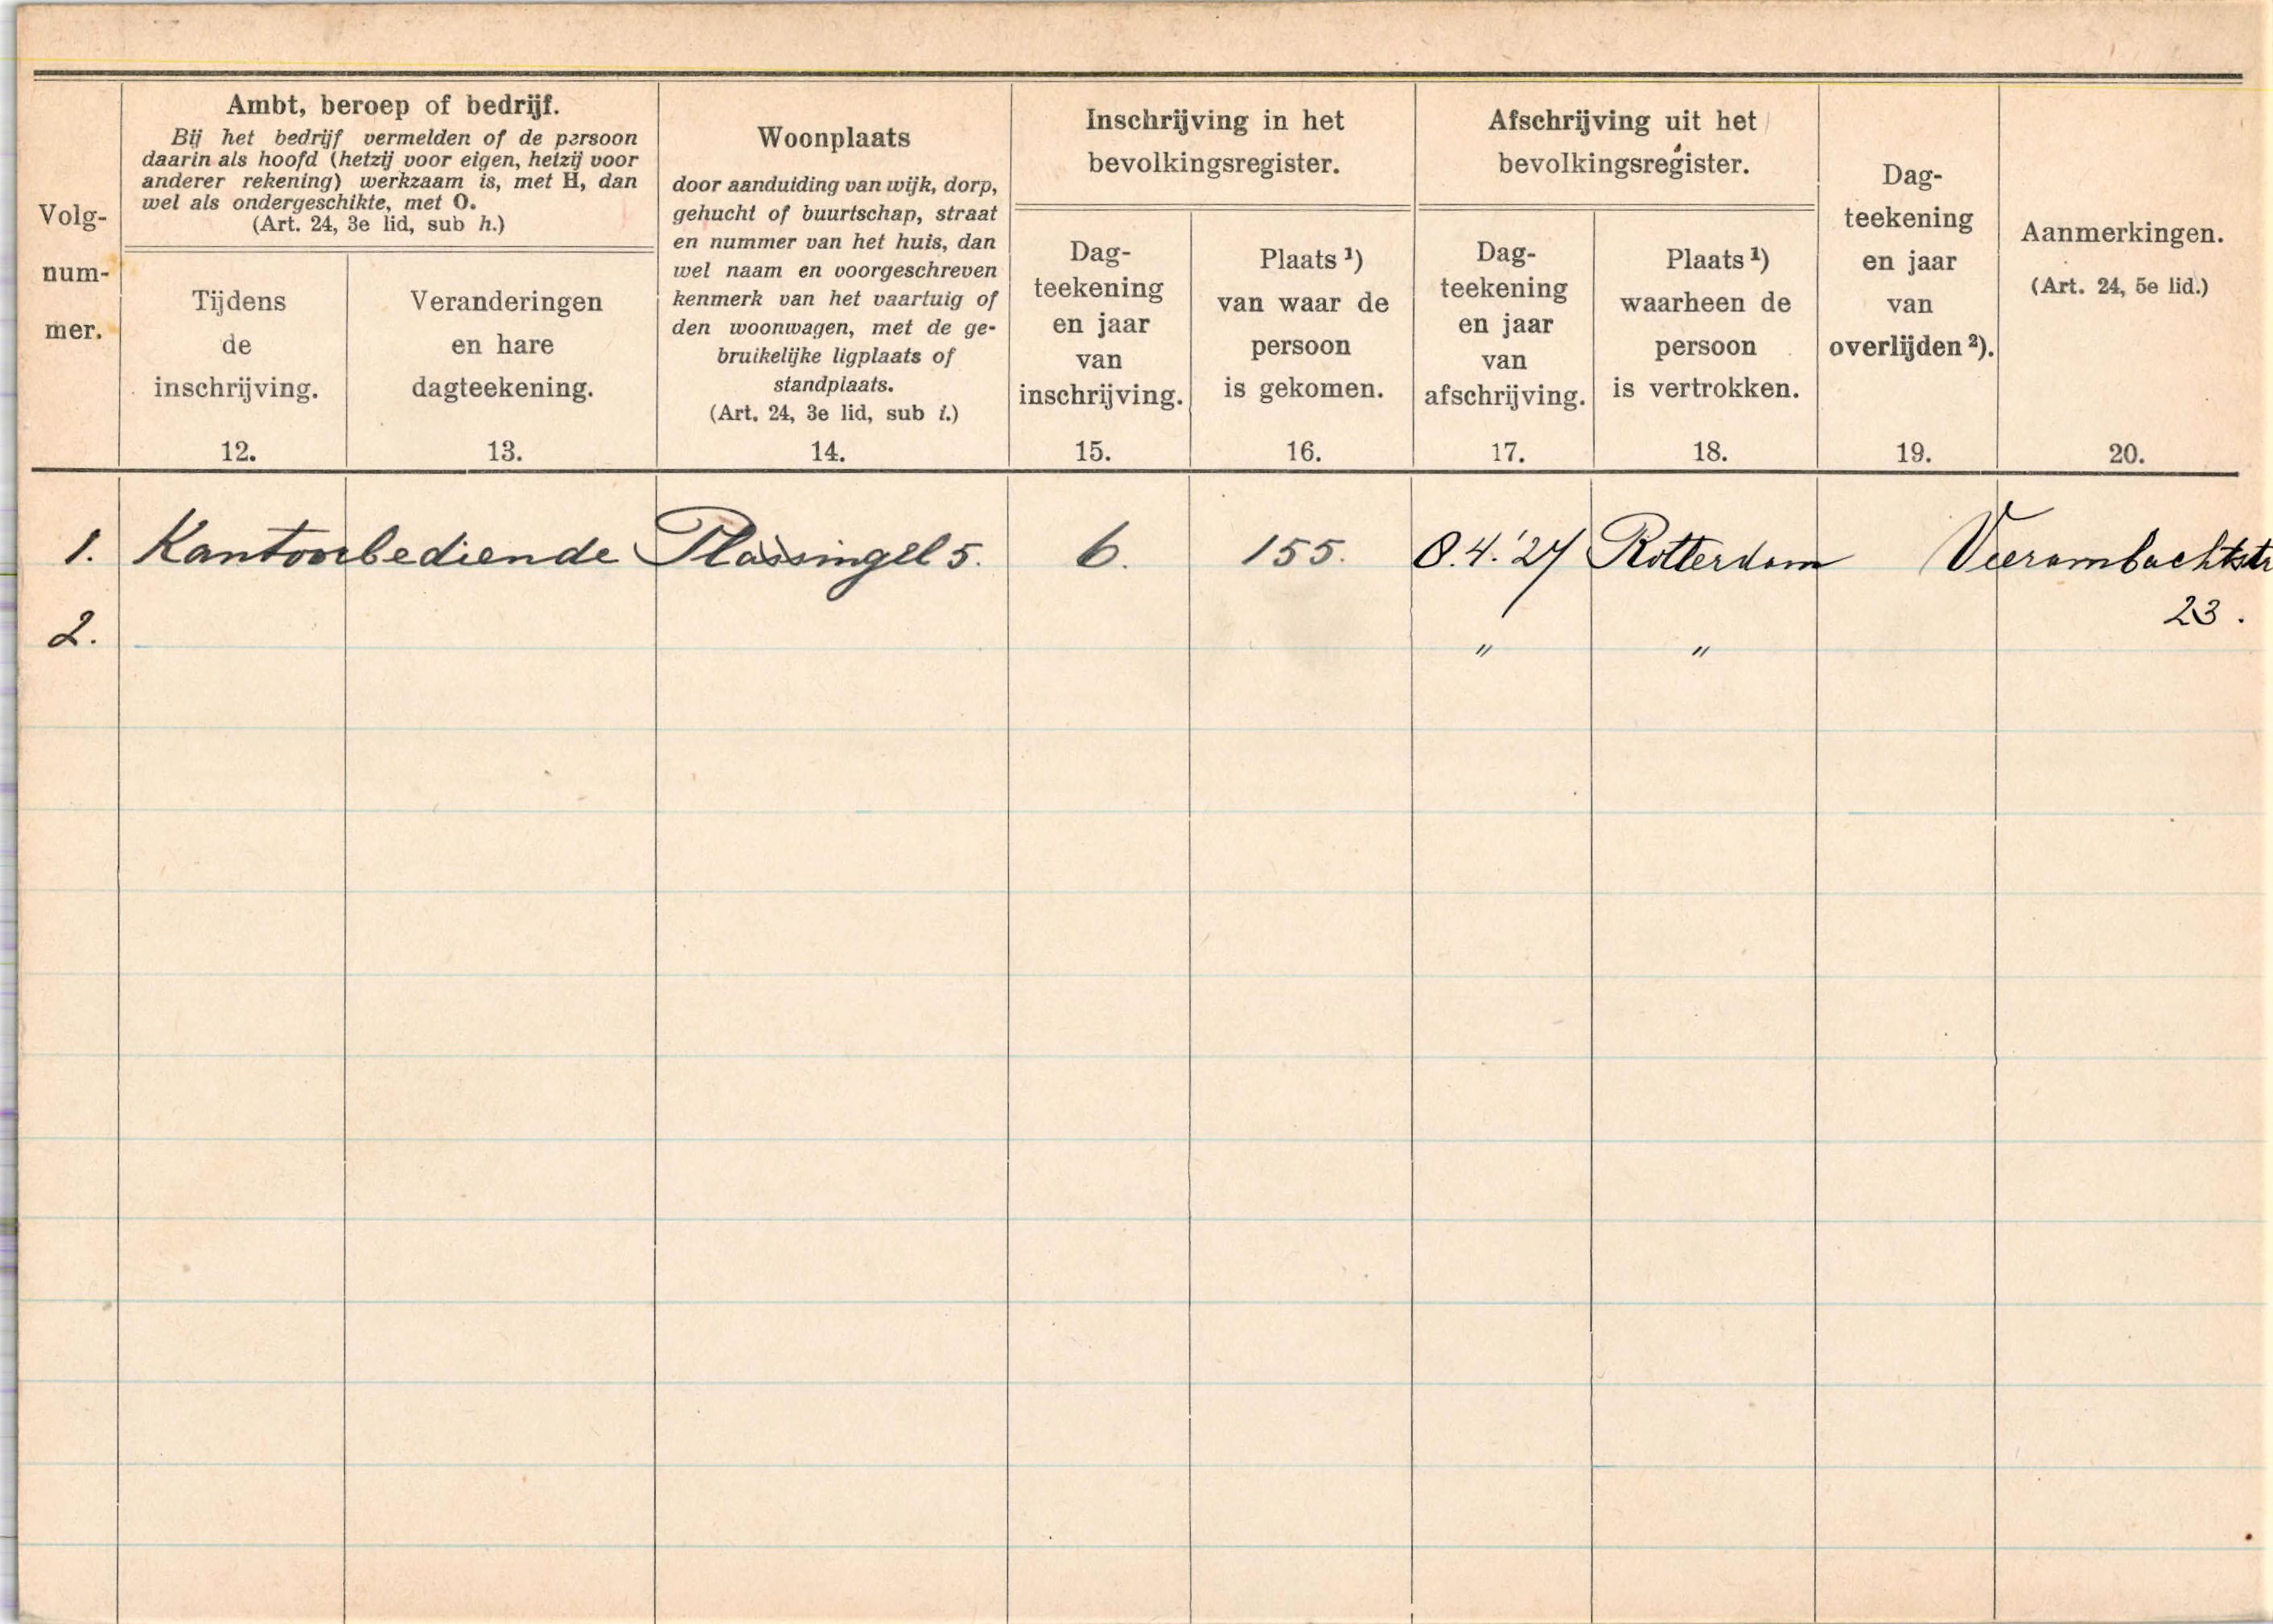 Volg-
num-
mer.
Ambt, beroep of bedrijf.
Bij het bedrijf vermelden of de persoon
daarin als hoofd (hetzij voor eigen, hetzij voor
anderer rekening) werkzaam is, met H, dan
wel als ondergeschikte, met O.
(Art. 24, 3e lid, sub h.)
Tijdens
de
inschrijving.
12.
Veranderingen
en hare
dagteekening.
13.
Woonplaats
door aanduiding van wijk, dorp,
gehucht of buurtschap, straat
en nummer van het huis, dan
wel naam en voorgeschreven
kenmerk van het vaartuig of
den woonwagen, met de ge-
bruikelijke ligplaats of
standplaats.
(Art. 24, 3e lid, sub i.)
14.
Inschrijving in het
bevolkingsregister.
Dag-
teekening
en jaar
van
inschrijving.
15.
Plaats ¹)
van waar de
persoon
is gekomen.
16.
Afschrijving uit het
bevolkingsregister.
Dag-
teekening
en jaar
van
afschrijving.
17.
Plaats ¹)
waarheen de
persoon
is vertrokken.
18.
Dag-
teekening
en jaar
van
overlijden ²).
19.
Aanmerkingen.
(Art. 24, 5e lid.)
20.
1. Kantoorbediende Plassingel 5. 6. 155. 8.4.'27 Rotterdam Veerambachtstr
23.
2. " "